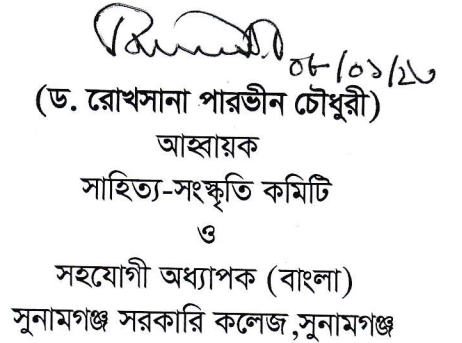 ০৮/০১/২৩
(ড. রোখসানা পারভীন চৌধুরী)
আহ্বায়ক
সাহিত্য-সংস্কৃতি কমিটি
ও
সহযোগী অধ্যাপক (বাংলা)
সুনামগঞ্জ সরকারি কলেজ ,সুনামগঞ্জ